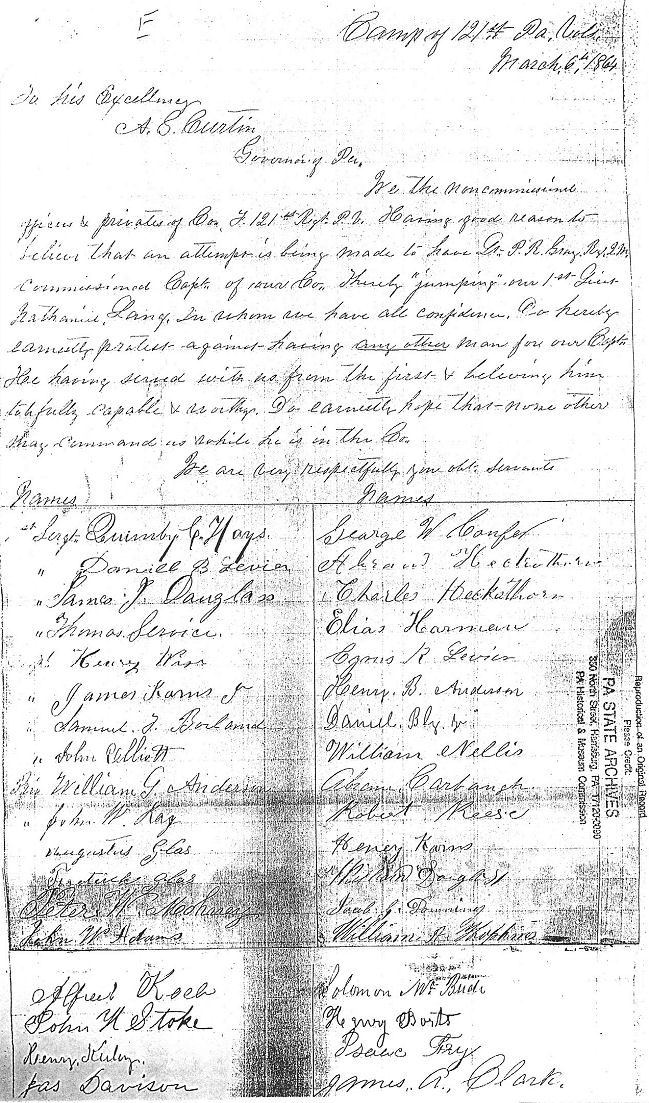 F
Camp of 121st Pa. Vols.
March 6th, 1864
To his Excellency
A. G. Curtin
Governor of Pa.
We the noncommissioned
officers & privates of Co. F. 121st Regt. P.V. Having good reason to
believe that an attempt is being made to have Lt. P. R. Gray, Regt. Q.M.
commissioned Capt. of our Co. thereby "jumping" our 1st Lieut.
Nathaniel Lang, In whom we have all confidence. Do hereby
earnestly protest against having any other man for our Capt.
He having served with us from the first & believing him
to be fully capable & worthy. Do earnestly hope that none other
may command us while he is in the Co.
We are very respectfully your obt. servants
Names Names
1st Sergt. Quimby C. Hays. George W Confer
" Daniel B Levier Abram Heckathorn
" James J. Douglass Charles Heckathorn
" Thomas Service. Elias Harman
Henry Wise Cyrus R. Levier
" James Karns Jr Henry B. Anderson
" Samuel F. Borland Daniel Bly Jr
" John Elliott William Nellis
Priv William G. Anderson Abram Carbaugh
" John W. Kay Robert Reese
Augustus Glas Henry Karns
Glas William Douglass
Peter Jacob G. Downing
John W Adams William A Hopkins
Alfred Koch Solomon McBride
John N Stoke Henry Borts
Henry Kirby. Isaac Fry
Jas Davison James. A. Clark.
Reproduction of an Original Record
Please Credit:
PA STATE ARCHIVES
350 North Street, Harrisburg, PA 17120-0090
PA Historical & Museum Commission